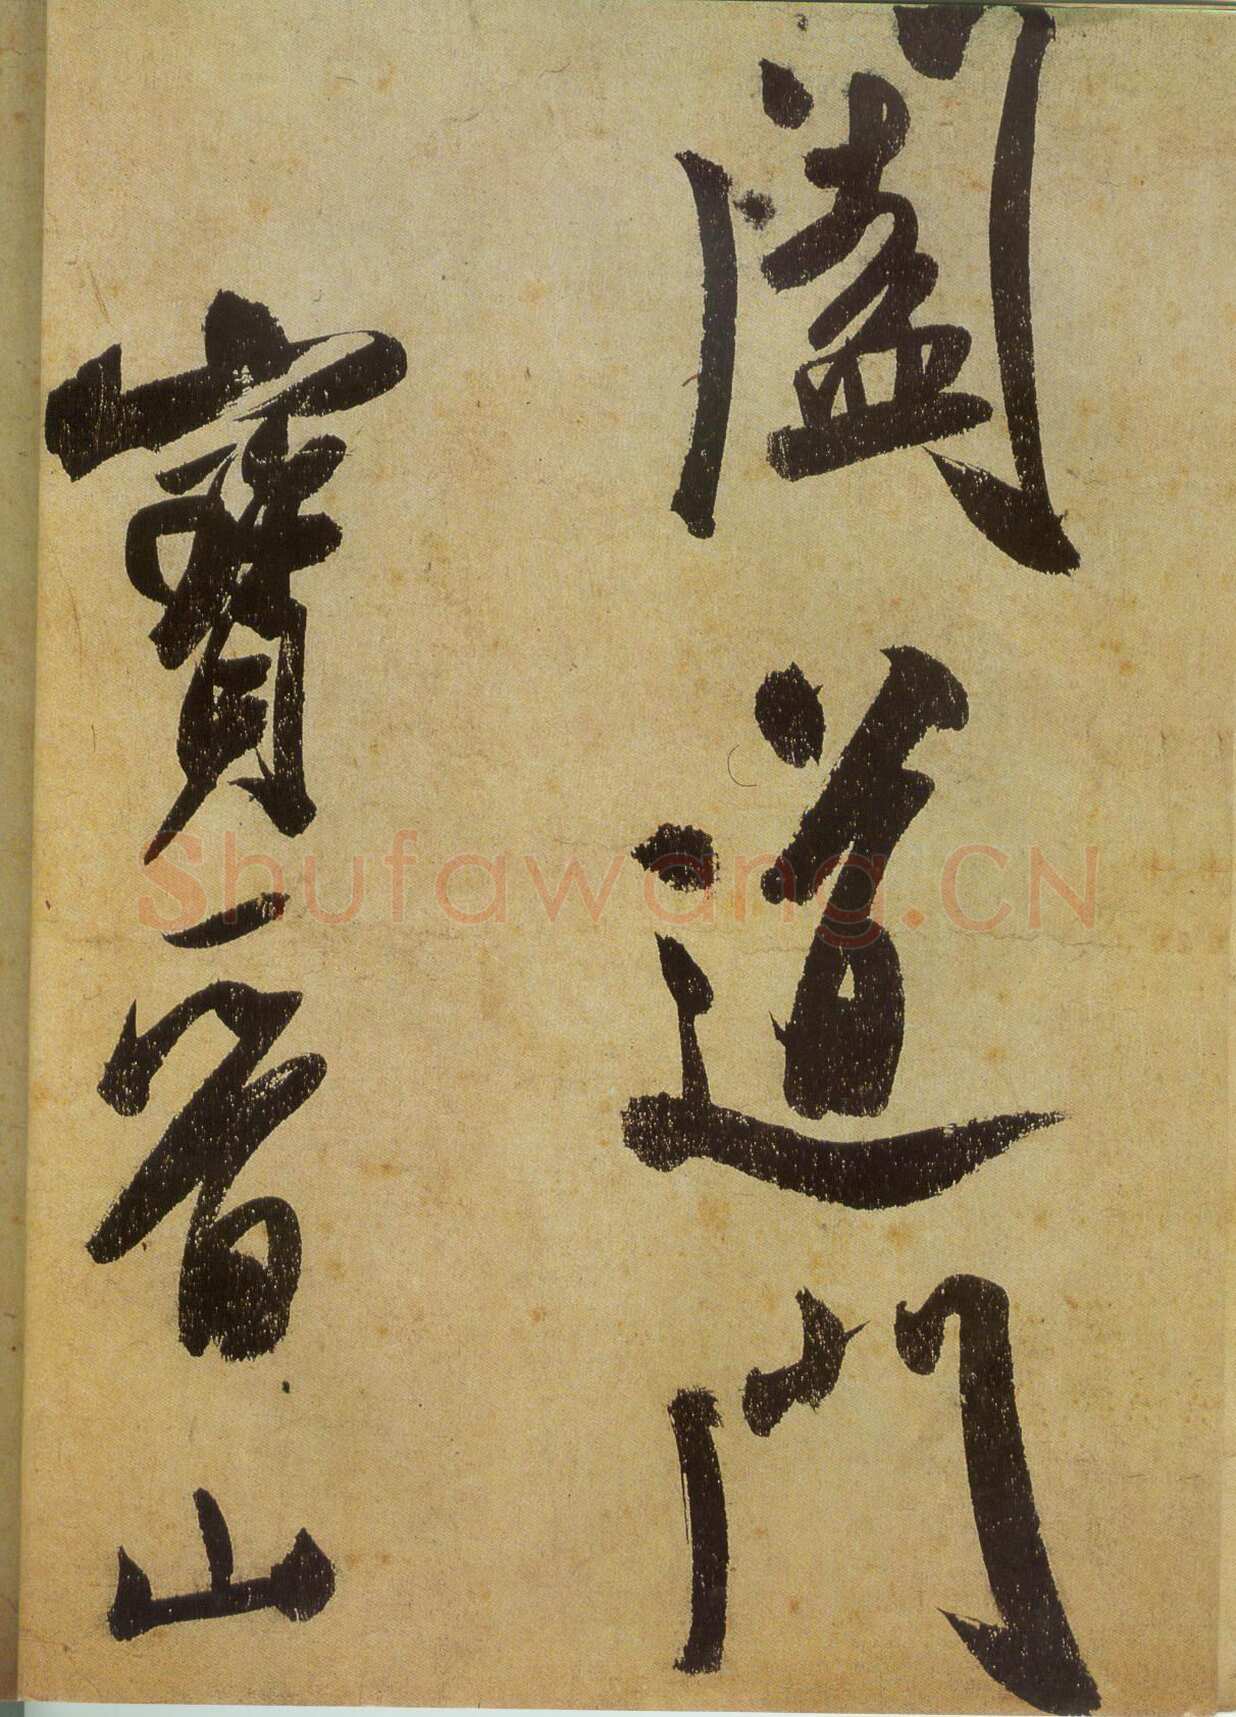 闔道門
寶晉山
Shufawang.CN